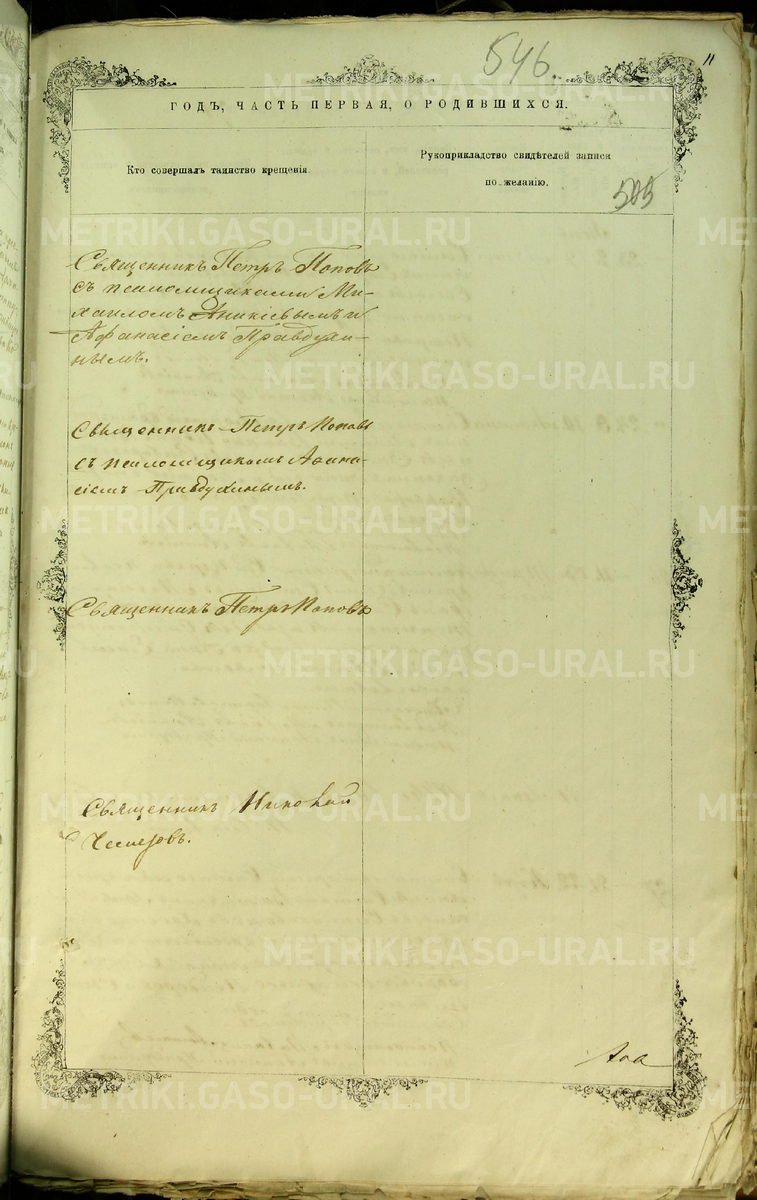 546.
11
ГОДЪ, ЧАСТЬ ПЕРВАЯ, О РОДИВШИХСЯ.
Кто совершалъ таинство крещенія.
Рукоприкладство свидѣтелей записи
по желанію.
Священникъ Петръ Поповъ
съ псаломщиками Ми-
хаиломъ Аникіевымъ и
Афанасіемъ Правдухи-
нымъ.
Священникъ Петръ Поповъ
съ псаломщикомъ Афана-
сіемъ Правдухинымъ.
Священникъ Петръ Поповъ
Священникъ Николай
METRIKI.GASO-URAL.RU